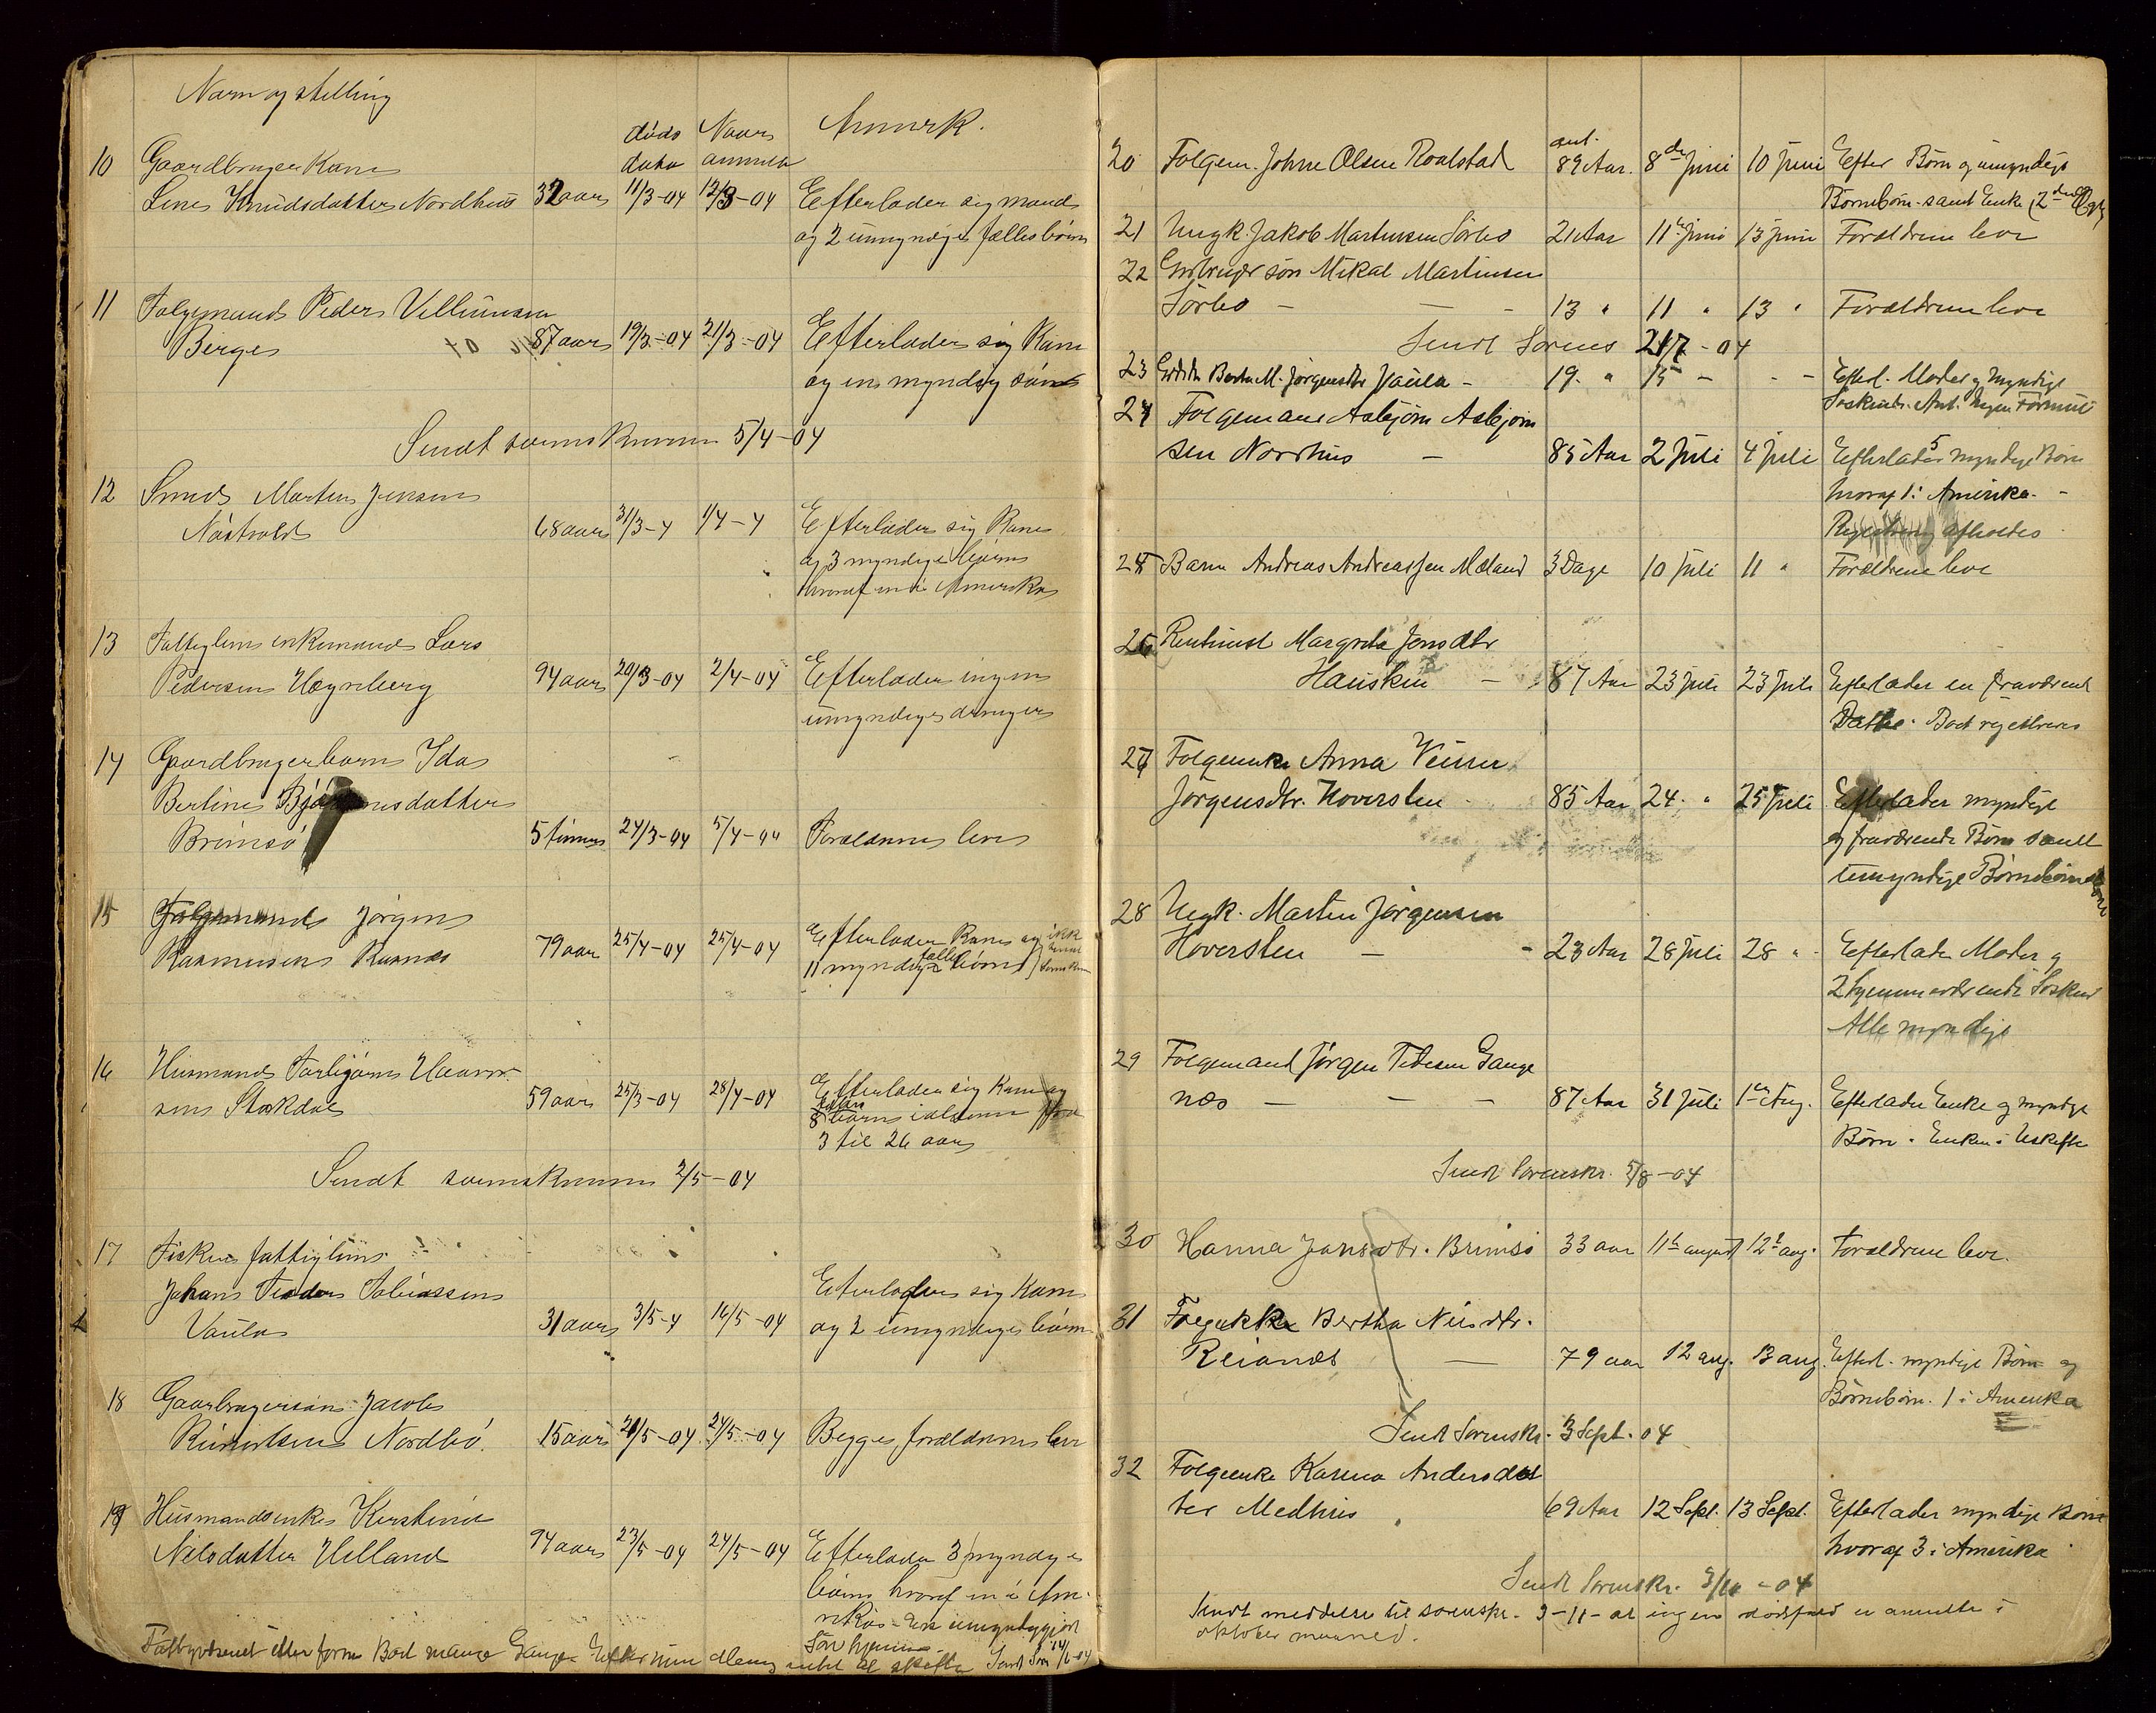 Navn og stilling
døds Naar Anmerk.
dato anmeldt
10 Gaardbruger Kone
Line Knudsdatter Nordhus 32 aar 11/3-04 12/3-04 Efterlader sig mand
og 2 umyndige fælles børn
11 Følgemand Peder Villumsen
Berge 87 aar 19/3-04 21/3-04 Efterlader sig Kone
og en myndig søn
Sendt sorenskriveren 5/4-04
12 Smed Morten Jensen
Nåstvold 68 aar 31/3-4 1/4-4 Efterlader sig Kone
og 3 myndige børn
hvoraf en i Amerika
13 Fattiglem enkemand Lars
Pedersen 94 aar 20/3-04 2/4-04 Efterlader ingen
umyndige arvinger
14 Gaardbrugerbarn Ida
Berline
Brimsø 5 timer 24/3-04 5/4-04 Forældrene lever
15 Følgemand Jørgen
Rasmussen 79 aar 25/4-04 25/4-04 Efterlader Kone og ikke
11 myndige fælles børn sendt
16 Husmand Torbjørn
sen Stokdal 59 aar 25/3-04 28/4-04 Efterlader sig Kone og
8 børn i alderen fra
3 til 26 aar
Sendt sorenskriveren 2/5-04
17 Fisker fattiglem
Johan Teodor Tobiassen Efterlader sig Kone
Vaula 31 aar 3/5-4 16/5-04 og 2 umyndige børn
18 Gaarbrugersøn Jacob
Nordbø. 15 aar 20/5-04 24/5-04 Begge forældrene lever
19 Husmandsenke Kirstine
Nelsdatter Helland 94 aar 23/5-04 24/5-04 Efterlader 3 myndige
børn hvoraf en i Ame
rika - En umyndiggjort
Søn hjemme.
Fattigvæsenet Bod mange Gange Efter min Mening intet at skifte Sendt Sor 14/6-04
20 Følgem. Johne Olsen Roalstad ant. 89 Aar. 8de Juni 10 Juni Efter Børn og umyndige
Børnebørn samt Enke (2den Ægt)
21 Ungk. Jakob Martinsen Sørbø 21 Aar 11te Juni 13 Juni Forældrene leve
22 Grdbruger søn Mikal Martinsen
Sørbø - - - 13 " 11 " 13 " Forældrene leve
Sendt Sorens 21/7-04
23 Berta M. Jørgensdtr Vaula - 19. " 15 - - - Efterl. Moder og Myndige
Søskende. Ant. Ingen Formue
24 Følgemand Asbjørn Asbjørn
sen Nordhus - 85 Aar 2 Juli 4 Juli Efterlader 5 myndige Børn
hvoraf 1 i Amerika. -
Registrering afholdes
25 Barn Andreas Andreassen Mæland 3 Dage 10 Juli 11 " Forældrene leve
26 Margreta Jonsdtr
Hausken - 87 Aar 23 Juli 23 Juli Efterlader en fraværende
Datter. Boet registreres
27 Følgeenke Anna
Jørgensdtr. Hoversten 85 Aar 24. " 25 Juli Efterlader myndige
og fraværende Børn samt
umyndige Børnebørn
28 Ungk. Martin Jørgensen
Hoversten - - 23 Aar 28 Juli 28 " Efterlader Moder og
2 hjemmeværende Søskend
Alle myndige
29 Følgemand Jørgen Gange
næs - - - 87 Aar 31 Juli 1ste Aug. Efterlader Enke og myndige
Børn. Enken i Uskifte
Sendt Sorenskr. 5/8-04
30 Hanna Jansdtr. Brimsø 33 aar 11te august 12te aug. Forældrene leve.
31 Følgeenke Bertha Nilsdtr.
Reianes - 79 aar 12 aug. 13 aug. Efterl. myndige Børn og
Børnebørn. 1 i Amerika
Sendt Sorenskr. 3 Sept. 04
32 Følgeenke Karina Andersdat
ter Medhus 69 Aar 12 Sept. 13 Sept. Efterlader myndige Børn
hvoraf 3 i Amerika
Sendt Sorenskr. 3/10-04
Sendt meddelse til sorenskr. 3-11- at ingen dødsfald er anmeldt i
oktober maaned.